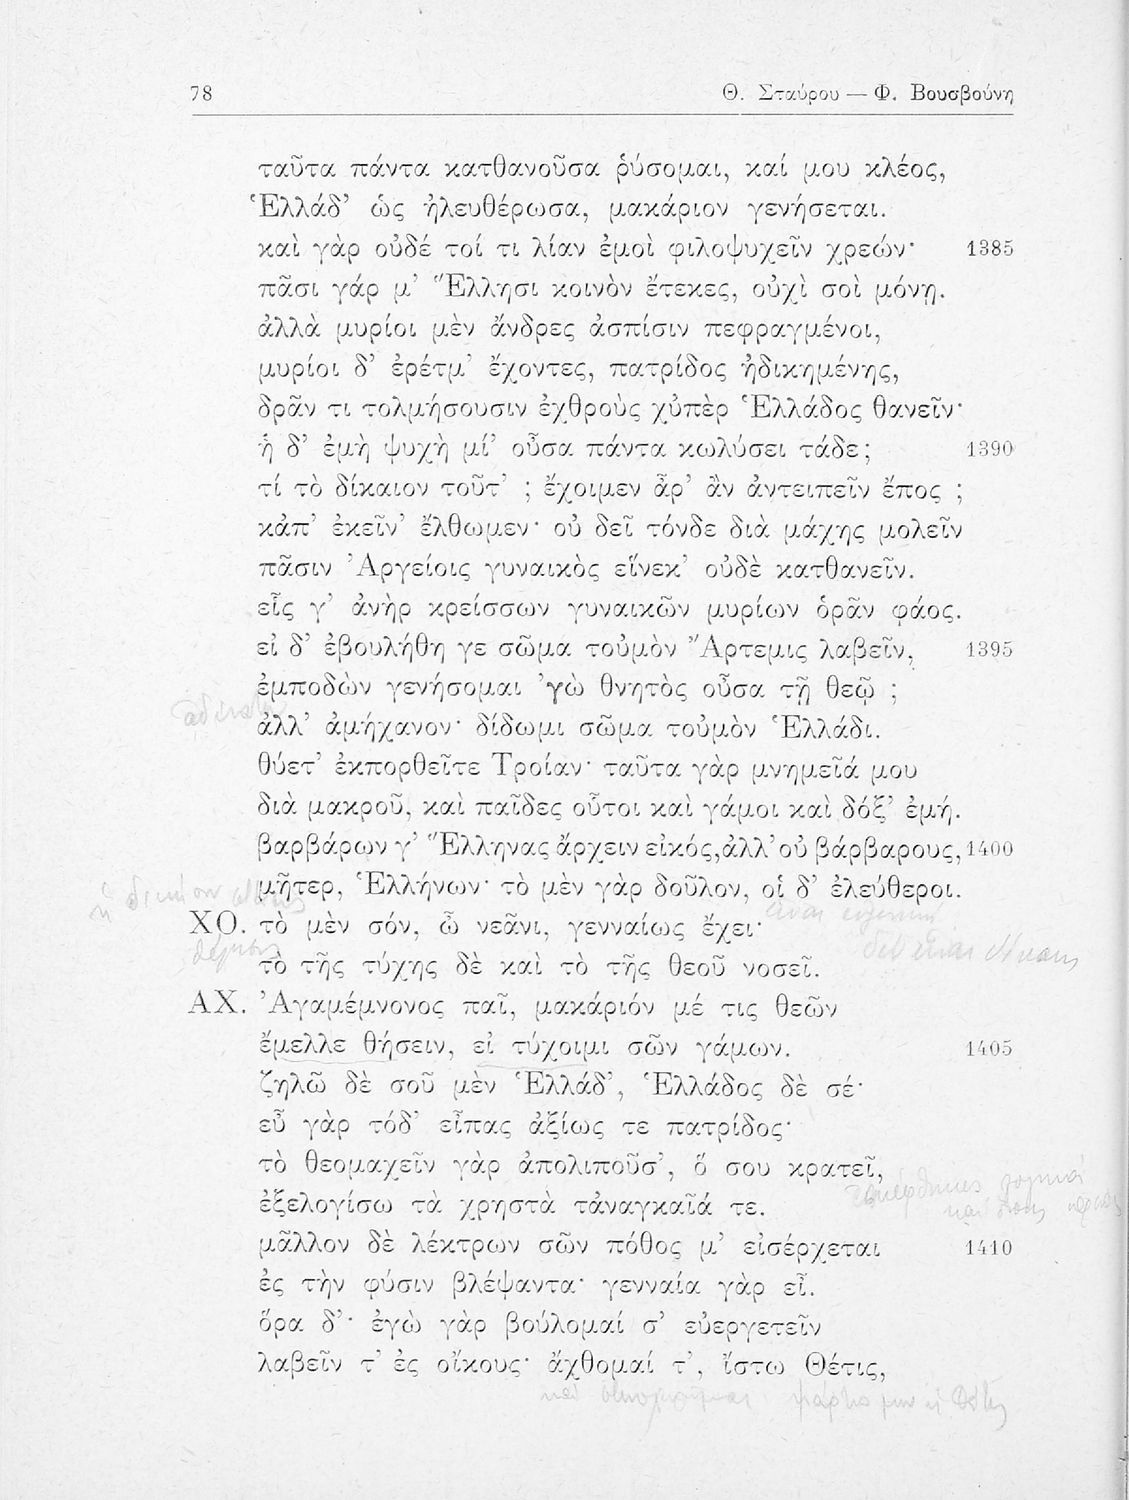 78 Θ. Σταύρου — Φ. Βουσβούνη
ταῦτα πάντα κατθανοῦσα ῥύσομαι, καί μου κλέος,
Ἑλλάδ’ ὡς ἠλευθέρωσα, μακάριον γενήσεται.
καὶ γὰρ οὐδέ τοί τι λίαν ἐμοὶ φιλοψυχεῖν χρεών· 1385
πᾶσι γάρ μ’ Ἕλλησι κοινὸν ἔτεκες, οὐχὶ σοὶ μόνῃ.
ἀλλὰ μυρίοι μὲν ἄνδρες ἀσπίσιν πεφραγμένοι,
μυρίοι δ’ ἐρέτμ’ ἔχοντες, πατρίδος ἠδικημένης,
δρᾶν τι τολμήσουσιν ἐχθροὺς χὐπὲρ Ἑλλάδος θανεῖν·
ἡ δ’ ἐμὴ ψυχὴ μί’ οὖσα πάντα κωλύσει τάδε; 1390
τί τὸ δίκαιον τοῦτ’ ; ἔχοιμεν ἆρ’ ἂν ἀντειπεῖν ἔπος ;
κἀπ’ ἐκεῖν’ ἔλθωμεν· οὐ δεῖ τόνδε διὰ μάχης μολεῖν
πᾶσιν Ἀργείοις γυναικὸς εἵνεκ’ οὐδὲ κατθανεῖν.
εἷς γ’ ἀνὴρ κρείσσων γυναικῶν μυρίων ὁρᾶν φάος.
εἰ δ’ ἐβουλήθη γε σῶμα τοὐμὸν Ἄρτεμις λαβεῖν, 1395
ἐμποδὼν γενήσομαι ’γὼ θνητὸς οὖσα τῇ θεῷ ;
ἀλλ’ ἀμήχανον· δίδωμι σῶμα τοὐμὸν Ἑλλάδι.
θύετ’ ἐκπορθεῖτε Τροίαν· ταῦτα γὰρ μνημεῖά μου
διὰ μακροῦ, καὶ παῖδες οὗτοι καὶ γάμοι καὶ δόξ’ ἐμή.
βαρβάρων γ’ Ἕλληνας ἄρχειν εἰκός, ἀλλ’ οὐ βάρβαρους, 1400
μῆτερ, Ἑλλήνων· τὸ μὲν γὰρ δοῦλον, οἱ δ’ ἐλεύθεροι.
ΧΟ. τὸ μὲν σόν, ὦ νεᾶνι, γενναίως ἔχει·
τὸ τῆς τύχης δὲ καὶ τὸ τῆς θεοῦ νοσεῖ.
ΑΧ. Ἀγαμέμνονος παῖ, μακάριόν μέ τις θεῶν
ἔμελλε θήσειν, εἰ τύχοιμι σῶν γάμων. 1405
ζηλῶ δὲ σοῦ μὲν Ἑλλάδ’, Ἑλλάδος δὲ σέ·
εὖ γὰρ τόδ’ εἶπας ἀξίως τε πατρίδος·
τὸ θεομαχεῖν γὰρ ἀπολιποῦσ’, ὅ σου κρατεῖ,
ἐξελογίσω τὰ χρηστὰ τἀναγκαῖά τε.
μᾶλλον δὲ λέκτρων σῶν πόθος μ’ εἰσέρχεται 1410
ἐς τὴν φύσιν βλέψαντα· γενναία γὰρ εἶ.
ὅρα δ’· ἐγὼ γὰρ βούλομαί σ’ εὐεργετεῖν
λαβεῖν τ’ ἐς οἴκους· ἄχθομαί τ’, ἴστω Θέτις,